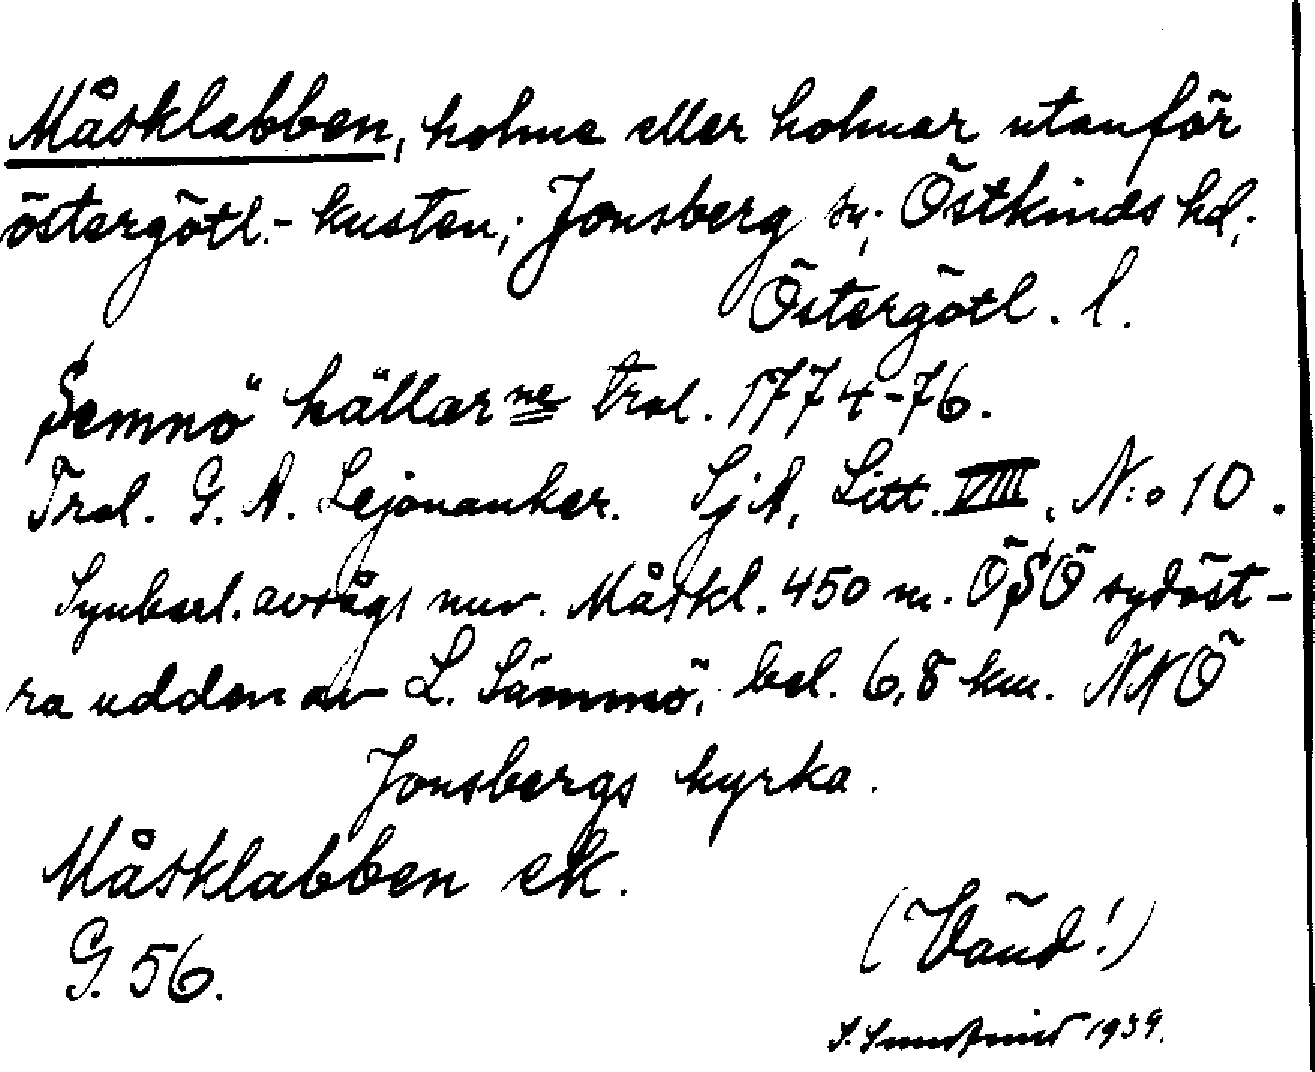 Måsklabben, holme eller holmar utanför
östergötl.- kusten; Jonsberg sn; Östkinds hd;
Östergötl. l.
Semnö hällarne trol. 1774-76.
Trol. G. A. Lejonanker. SjA, Litt. VIII, N:o 10.
avsågs nuv. Måskl. 450 m. ÖSÖ sydöst-
ra udden av L. Sämmö, bel. 6,8 km. NNÖ
Jonsbergs kyrka.
Måsklabben ek.
G. 56.
(Vänd!)
1939.